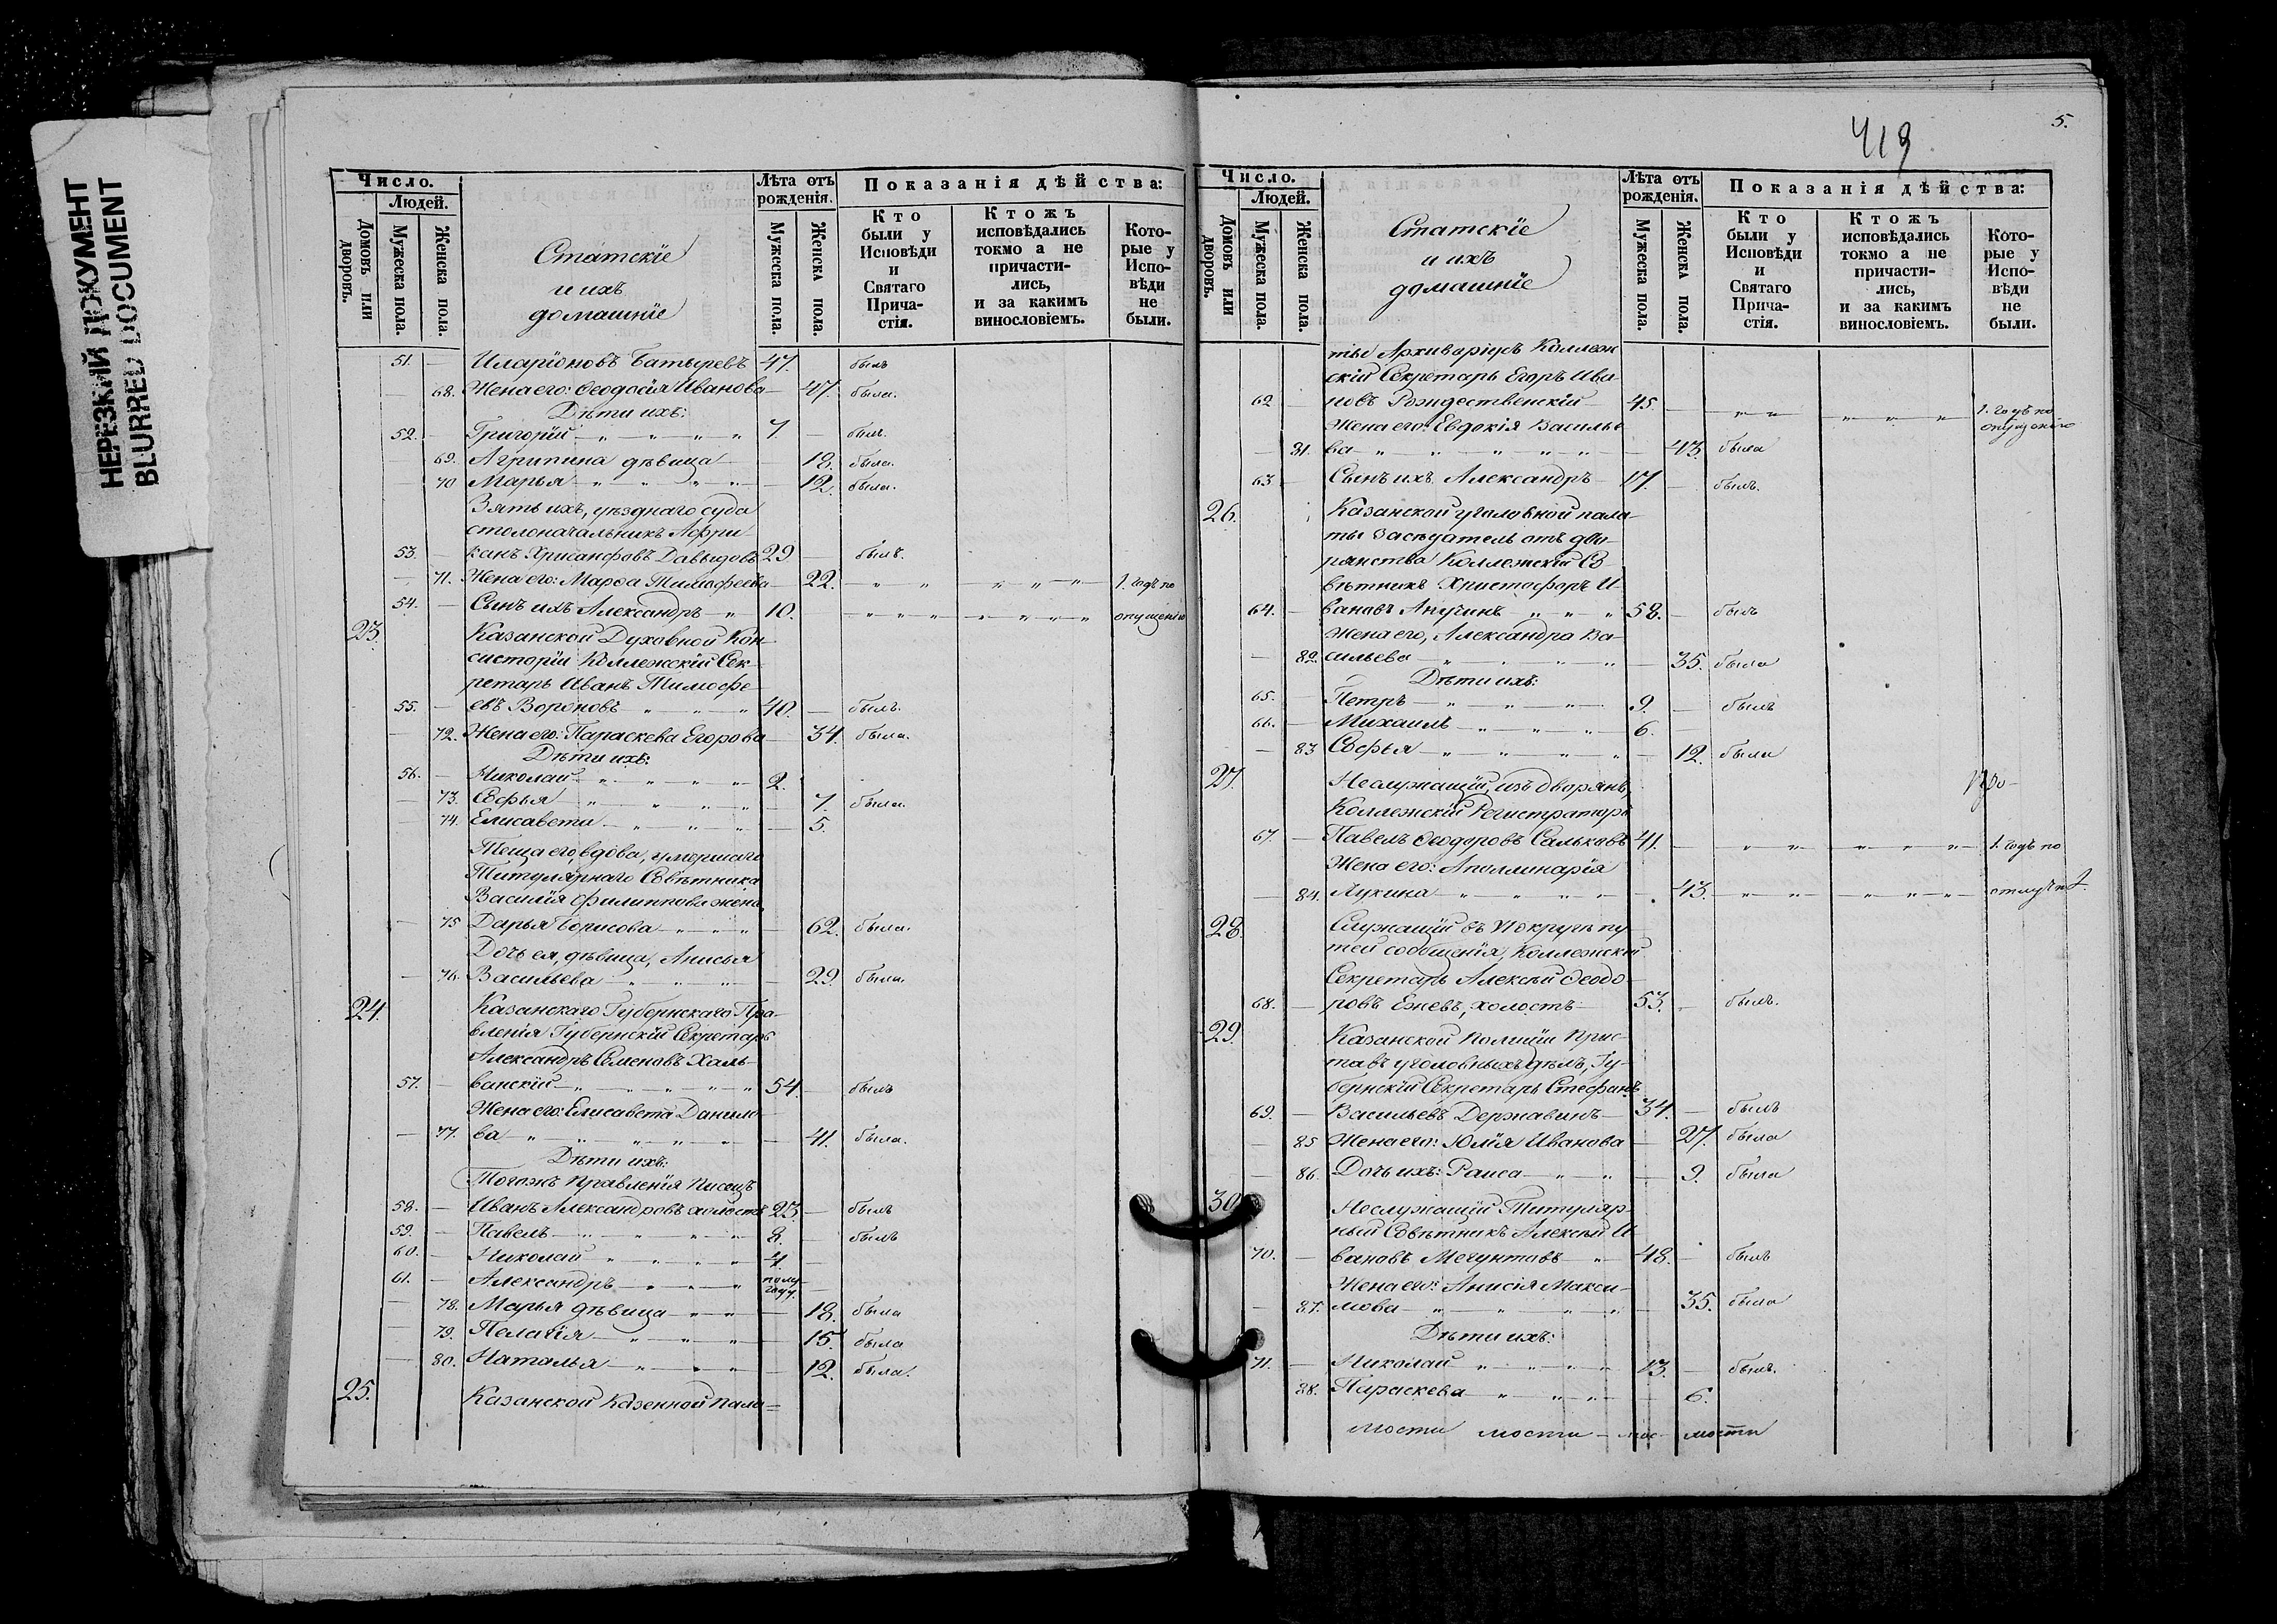 НЕРЕЗКИЙ ДОКУМЕНТ
BLURRED DOCUMENT
Число.
Людей.
Домовъ или дворовъ.
Мужеска пола.
Женска пола.
Статскіе
и ихъ
домашніе
Лѣта отъ рожденія.
Мужеска пола.
Женска пола.
Показанія дѣйства:
Кто были у Исповѣди и Святаго Причастія.
Ктожъ исповѣдались токмо а не причастились, и за какимъ винословіемъ.
Которые у Исповѣди не были.
51. — Иларіоновъ Батыревъ 47. былъ
— 68. Жена его: Ѳеодосія Иванова — 47. была.
Дѣти ихъ:
52. — Григорій — „ „ „ „ 7. — былъ.
69. Агрипина дѣвица — 18. была.
70 Марья — „ „ „ „ — 12. была.
Зять ихъ, уѣзднаго суда
столоначальникъ Афри-
53. — канъ Хрисанфовъ Давыдовъ 29 — былъ.
— 71. Жена его: Марѳа Тимофеева — 22. „ „ „ „ „ 1. годъ по
54. — Сынъ ихъ Александръ „ 10. „ „ „ „ „ „ „ опущенію
23. Казанской Духовной Кон-
систоріи Коллежскій Сек-
ретарь Иванъ Тимофе-
55. — евъ Вороновъ „ „ „ 40. — былъ.
— 72. Жена его: Параскева Егорова — 34. была.
Дѣти ихъ:
56. — Николай „ „ „ „ 2.
— 73. Софья „ „ „ „ 7. была.
— 74. Елисавета — „ „ „ — 5.
Теща его, вдова, умершаго
Титулярнаго Совѣтника
Василія Филиппова жена,
— 75 Дарья Борисова „ „ „ — 62. была.
Дочь ея, дѣвица, Анисья
— 76. Васильева „ „ „ — 29. была.
24. Казанскаго Губернскаго Пра-
вленія Губернскій Секретарь
Александръ Семеновъ Халь-
57. — ванскій „ „ „ „ „ 54. былъ
Жена его: Елисавета Данило-
— 77. ва „ „ „ „ „ — 41. была.
Дѣти ихъ:
Тогожъ Правленія Писецъ
58. — Иванъ Александровъ холостъ 23. — былъ
59. — Павелъ „ „ „ „ 8. — былъ
60. — Николай „ „ „ „ 4. —
61. — Александръ „ „ „ полу-году. —
— 78. Марья дѣвица „ „ — 18. была
— 79. Пелагія „ „ „ — 15. была
— 80. Наталья „ „ „ — 12. была.
25. Казанской Казенной Пала=
419
5.
Число.
Людей.
Домовъ или дворовъ.
Мужеска пола.
Женска пола.
Статскіе
и ихъ
домашніе
Лѣта отъ рожденія.
Мужеска пола.
Женска пола.
Показанія дѣйства:
Кто были у Исповѣди и Святаго Причастія.
Ктожъ исповѣдались токмо а не причастились, и за какимъ винословіемъ.
Которые у Исповѣди не были.
ты Архиваріусъ Коллеж-
скій Секретарь Егоръ Ива-
62 новъ Рождественскій 45. — „ „ „ „ „ 1. годъ по
Жена его: Евдокія Василье- опущенію
— 81. ва „ „ „ „ „ — 43. была
63 — Сынъ ихъ Александръ 17. — былъ.
26. Казанской уголовной пала-
ты Засѣдатель отъ дво-
рянства Коллежскій Со-
вѣтникъ Христофоръ И-
64. — вановъ Анучинъ „ „ „ 58. — былъ
Жена его, Александра Ва-
— 82. сильева „ „ „ „ — 35. была
Дѣти ихъ:
65. — Петръ „ „ „ 9. — былъ
66. — Михаилъ „ „ „ 6. —
— 83 Софья „ „ „ „ — 12. была
27. Неслужащій, изъ дворянъ,
Коллежскій Регистраторъ
67. — Павелъ Ѳеодоровъ Сальковъ 41. — „ „ „ „ „ 1. годъ по
Жена его: Аполлинарія
— 84. Лукина „ „ „ „ — 43. „ „ „ „ „
28. Служащій въ округѣ пу-
тей сообщенія, Коллежскій
Секретарь Алексѣй Ѳеодо-
68. — ровъ Ежевъ, холостъ 53. — былъ.
29. Казанской Полиціи Прис-
тавъ уголовныхъ дѣлъ, Гу-
бернскій Секретарь Стефанъ
69. — Васильевъ Державинъ 34. — былъ
— 85 Жена его: Юлія Иванова — 27. была
— 86. Дочь ихъ: Раиса „ „ — 9. была
30 Неслужащій Титуляр-
ный Совѣтникъ Алексѣй И-
70. — вановъ Мегунтовъ „ 48. — былъ
Жена его: Анисія Макси-
— 87. мова „ „ „ „ — 35. была
Дѣти ихъ:
71. — Николай „ „ „ „ 13. — былъ.
— 88. Параскева „ „ „ — 6.
мости мости мости